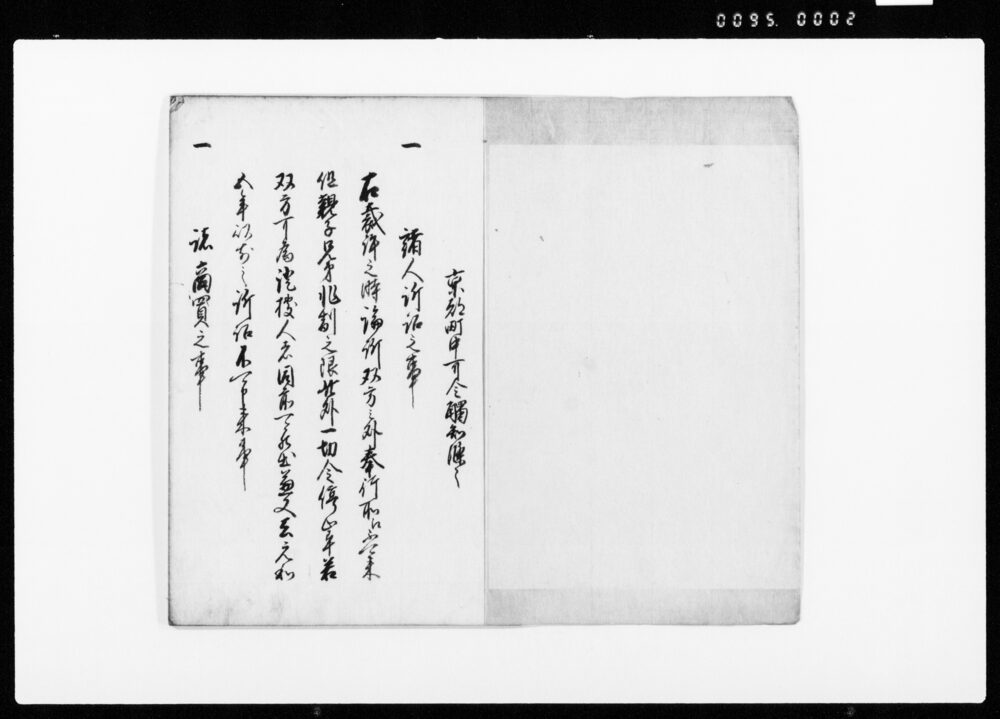 0095. 0002
京都町中可令觸知條々
一 諸人訴訟之事
右裁許之時論所双方之外奉行所江不可来
但親子兄弟非制之限此外一切令停止畢若
双方可為證拠人者図前可罷出兼又去元和
五年以前之訴訟不可来事
一 諸商買之事